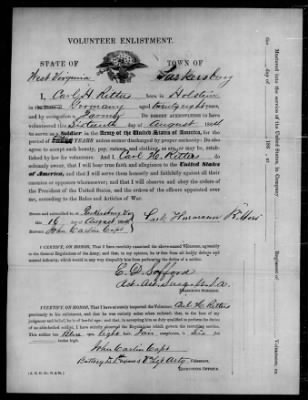 VOLUNTEER ENLISTMENT.
STATE OF TOWN OF
West Virginia Parkersburg
I, Carl H Ritters born in Holstein
in the State of Germany aged twenty eight years,
and by occupation a Farmer DO HEREBY ACKNOWLEDGE to have
volunteered this Sixteenth day of August
as a Soldier in the Army of the United States of America, for the
period of THREE YEARS unless sooner discharged by proper authority: Do
also agree to accept such bounty, pay, rations, and clothing, as are, or may be, estab-
lished by law for volunteers. And I, Carl H. Ritters do
solemnly swear, that I will bear true faith and allegiance to the United States
of America, and that I will serve them honestly and faithfully against all their
enemies or opposers whomsoever; and that I will observe and obey the orders of
the President of the United States, and the orders of the officers appointed over
me, according to the Rules and Articles of War.
Sworn and subscribed to, at Parkersburg Va
this 16 day of August
John Carlin Capt
Carl Hermann Ritters
I CERTIFY, ON HONOR, That I have carefully examined the above-named Volunteer, agreeably
to the General Regulations of the Army, and that, in my opinion, he is free from all bodily defects
and mental infirmity, which would in any way disqualify him from performing the duties of a
soldier.
E. D. Safford
EXAMINING SURGEON.
I CERTIFY, ON HONOR, That I have minutely inspected the Volunteer, Carl H. Ritters
previously to his enlistment, and that he was entirely sober when enlisted; that, to the best of my
judgment and belief, he is of lawful age; and that, in accepting him as duly qualified to perform the duties
of an able-bodied soldier, I have strictly observed the Regulations which govern the recruiting service.
This soldier has Blue eyes, light hair, complexion, is
feet inches high.
John Carlin Capt
Battery D 1st Regiment of Va Lgt Arty Volunteers,
RECRUITING OFFICER.
Mustered into the service of the United States, in Company
Regiment of Volunteers, on
the day of 186